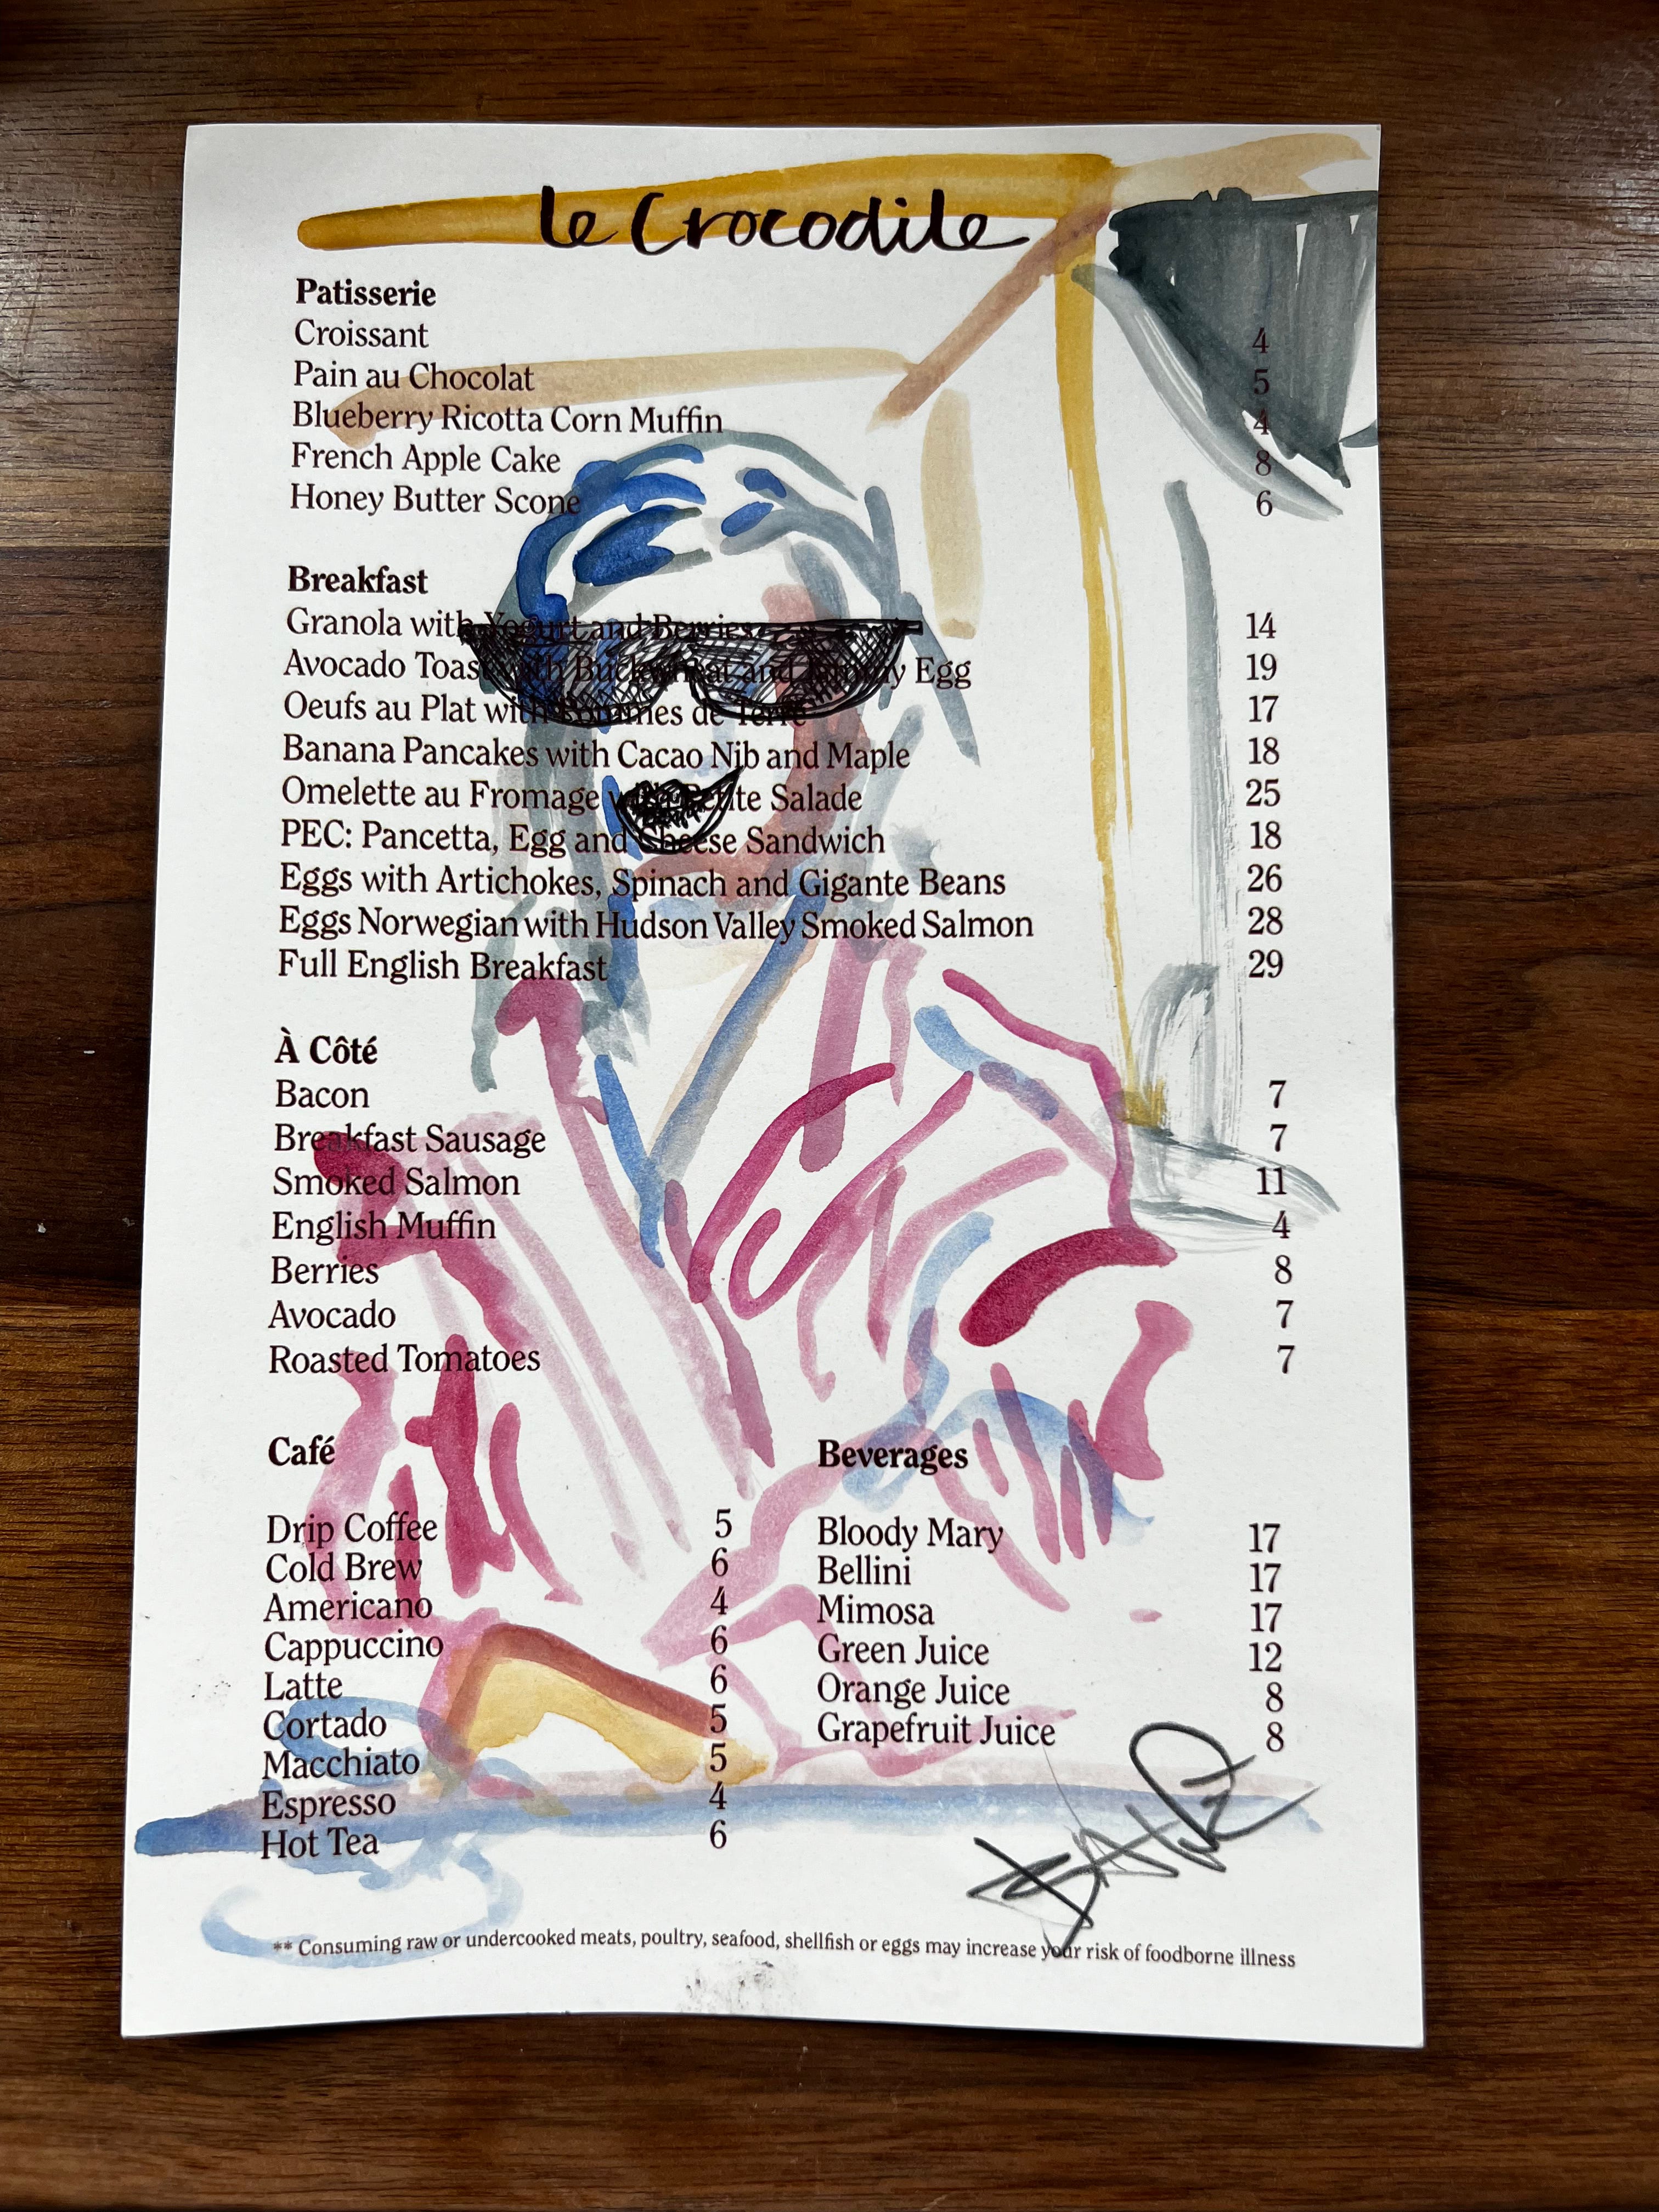 le Crocodile
Patisserie
Croissant 4
Pain au Chocolat 5
Blueberry Ricotta Corn Muffin 4
French Apple Cake 8
Honey Butter Scone 6
Breakfast
Granola with Yogurt and Berries 14
Avocado Toast with Buckwheat and Egg 19
Oeufs au Plat with Pommes de Terre 17
Banana Pancakes with Cacao Nib and Maple 18
Omelette au Fromage with Petite Salade 25
PEC: Pancetta, Egg and Cheese Sandwich 18
Eggs with Artichokes, Spinach and Gigante Beans 26
Eggs Norwegian with Hudson Valley Smoked Salmon 28
Full English Breakfast 29
À Côté
Bacon 7
Breakfast Sausage 7
Smoked Salmon 11
English Muffin 4
Berries 8
Avocado 7
Roasted Tomatoes 7
Café
Drip Coffee 5
Cold Brew 6
Americano 4
Cappuccino 6
Latte 6
Cortado 5
Macchiato 5
Espresso 4
Hot Tea 6
Beverages
Bloody Mary 17
Bellini 17
Mimosa 17
Green Juice 12
Orange Juice 8
Grapefruit Juice 8
** Consuming raw or undercooked meats, poultry, seafood, shellfish or eggs may increase your risk of foodborne illness